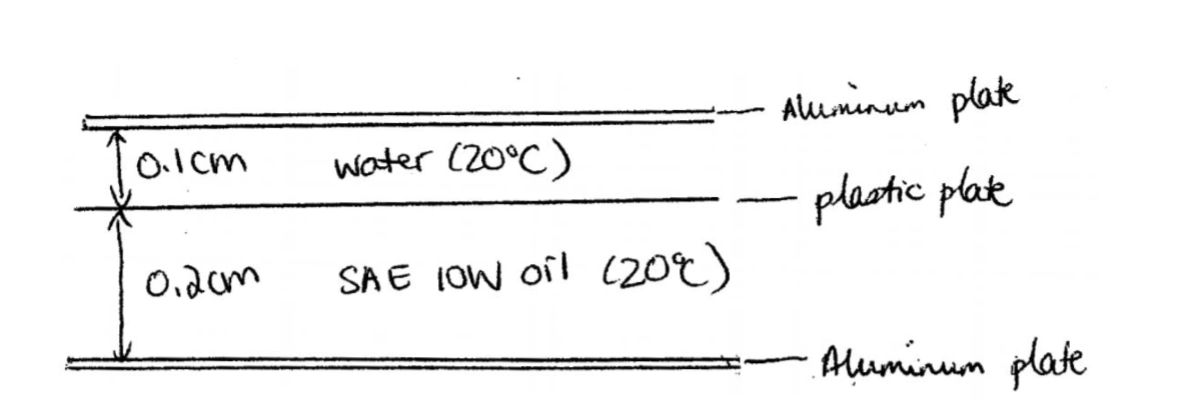 Aluminum plate
0.1cm water (20°C)
plastic plate
0.2cm SAE 10W oil (20°C)
Aluminum plate